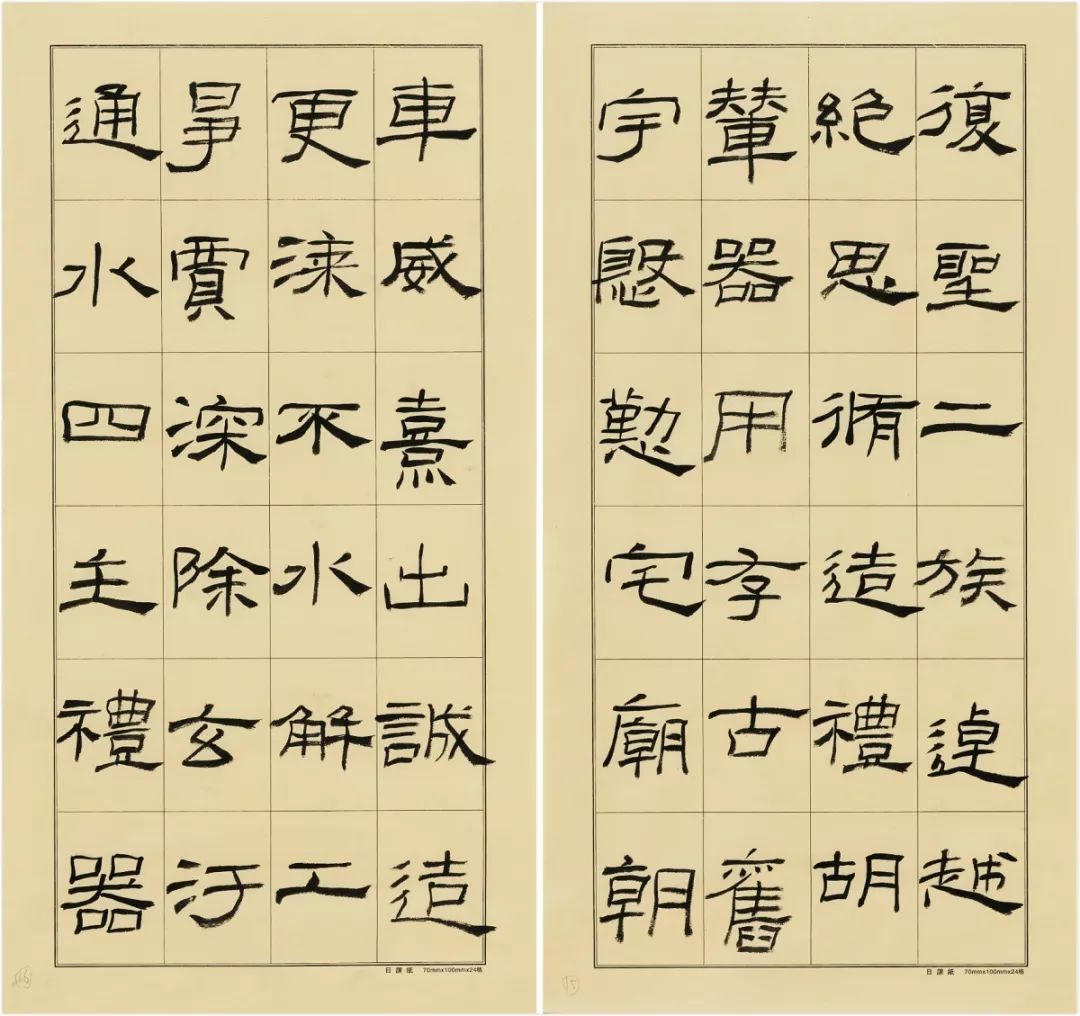 復聖二族逴越
絕思脩造禮胡
輦器用存古舊
宇慇懃宅廟朝
日課紙 70mmx100mmx24格
15
車威熹出誠造
更漆不水解工
爭賈深除玄汙
通水四主禮器
日課紙 70mmx100mmx24格